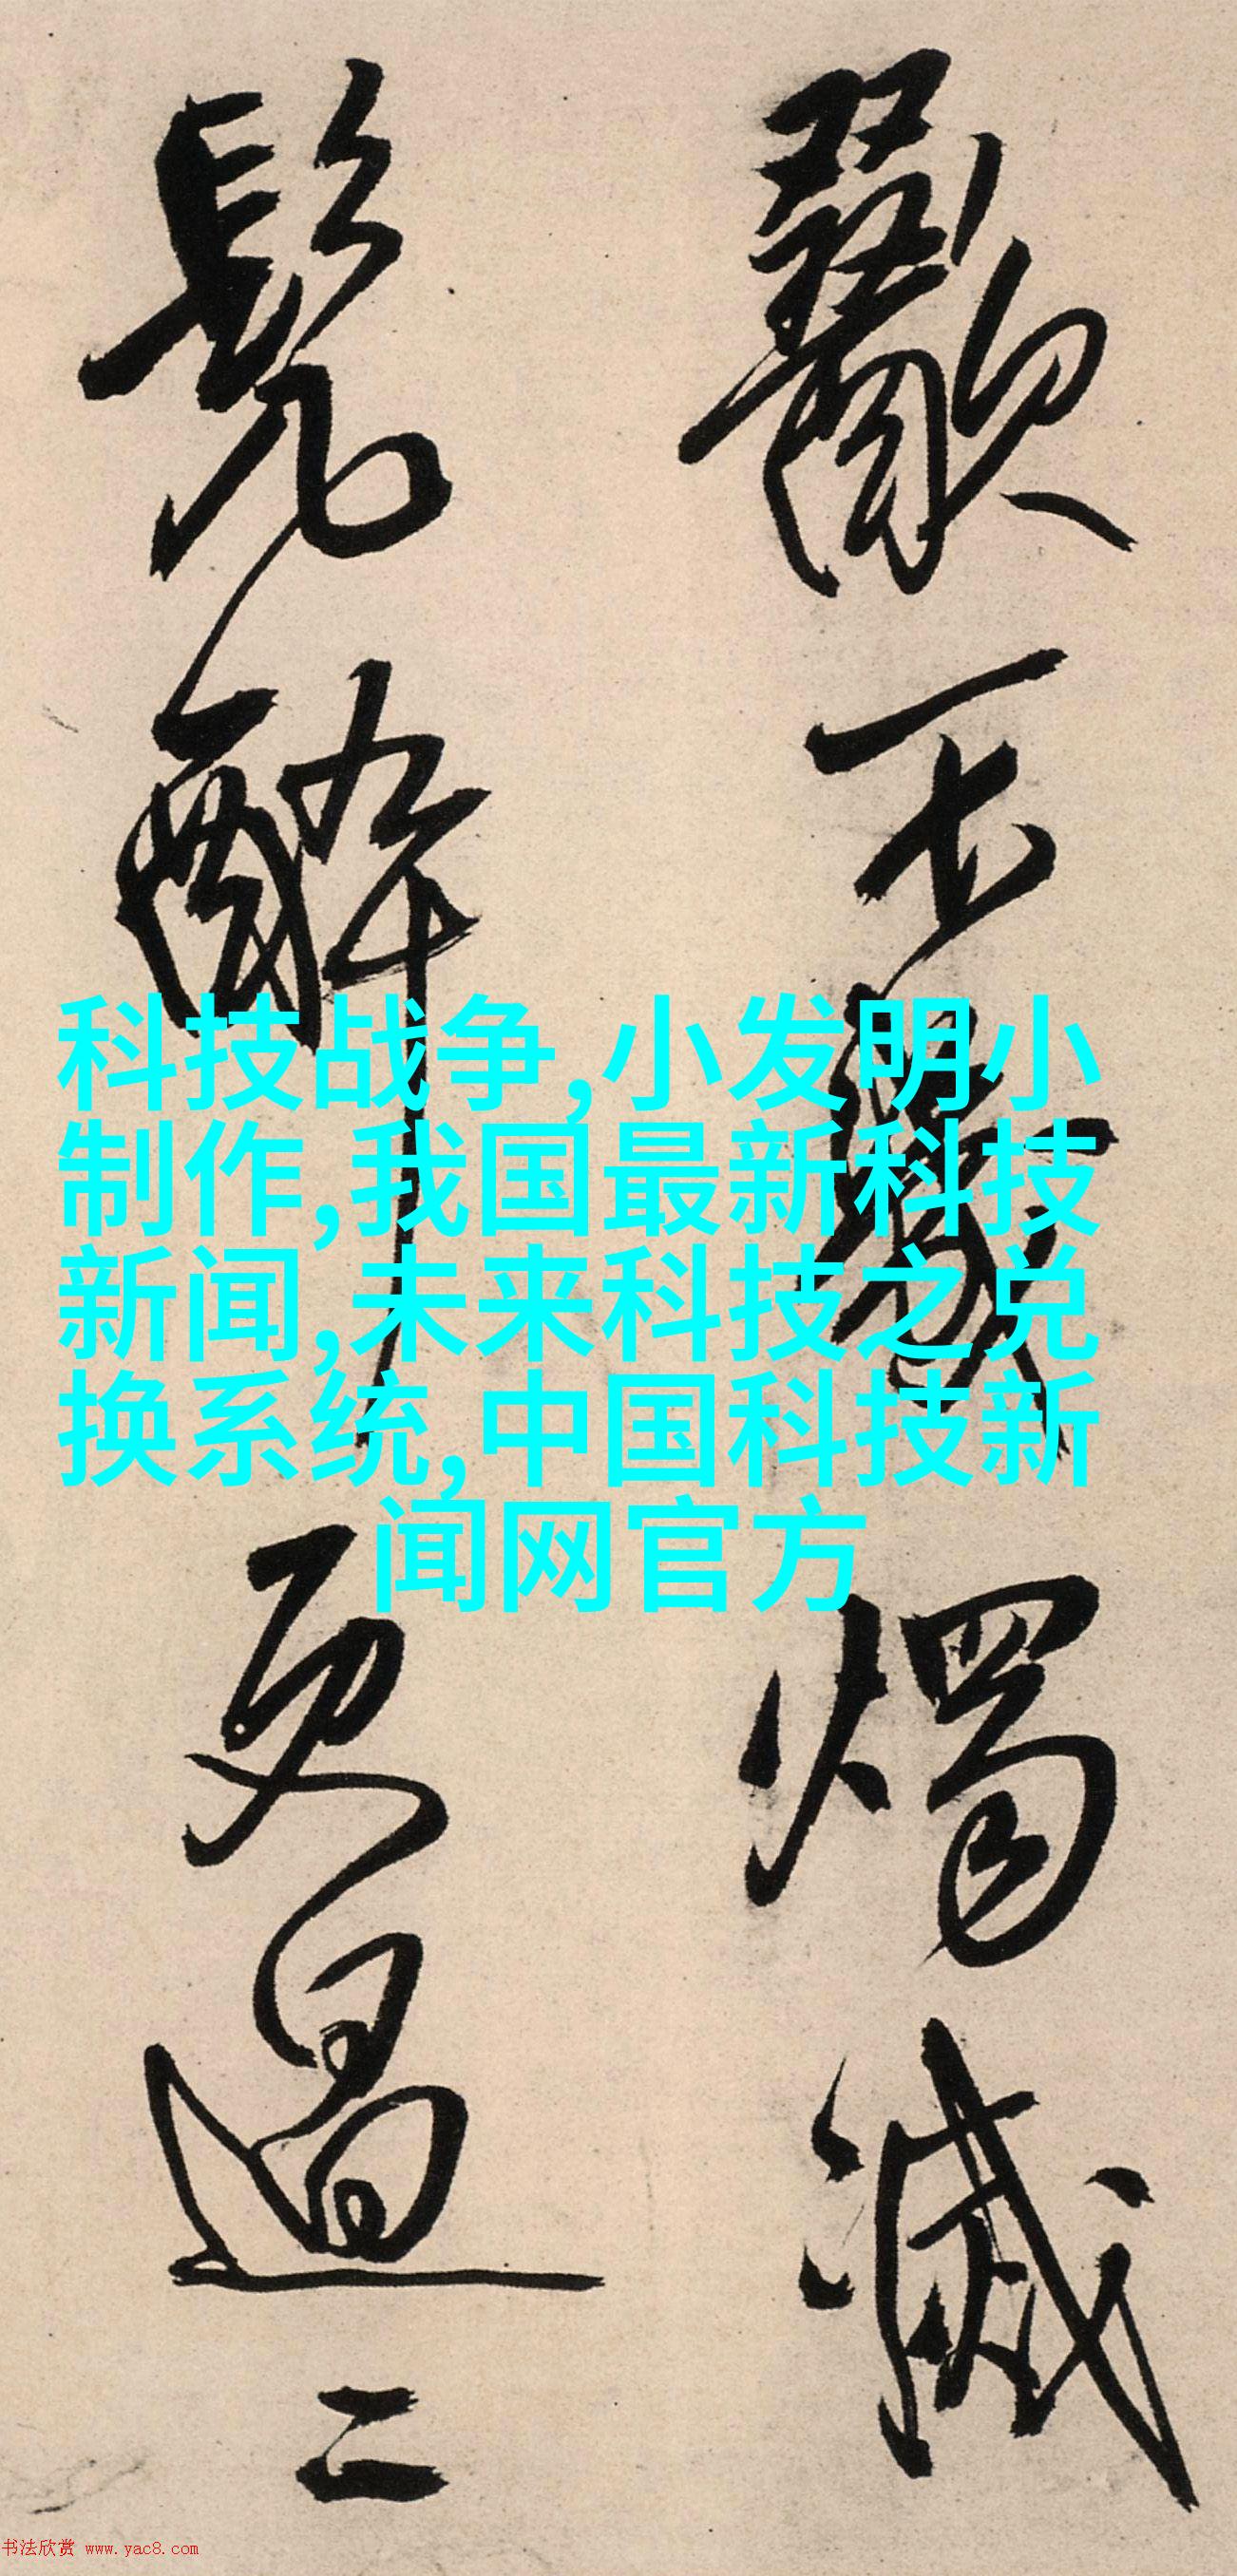 歠不（
燭滅
鬓醉
更過二
科技战争,小发明小
制作,我国最新科技
新闻,未来科技之兑
换系统,中国科技新
闻网官方
书法欣赏 www.yac8.com